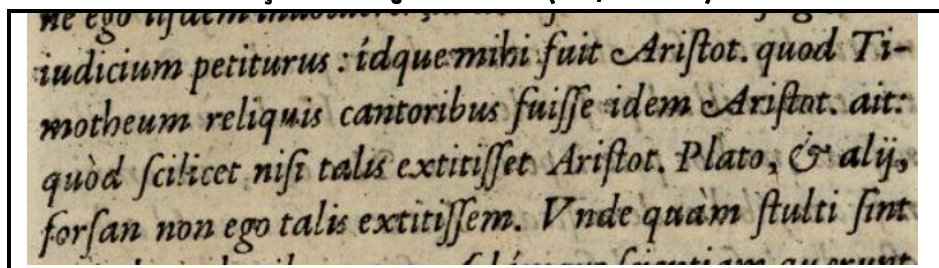 ne ego
iudicium petiturus : idque mihi fuit Aristot. quod Ti-
motheum reliquis cantoribus fuisse idem Aristot. ait:
quòd scilicet nisi talis extitisset Aristot. Plato, & alij,
forsan non ego talis extitissem. Vnde quàm stulti sint